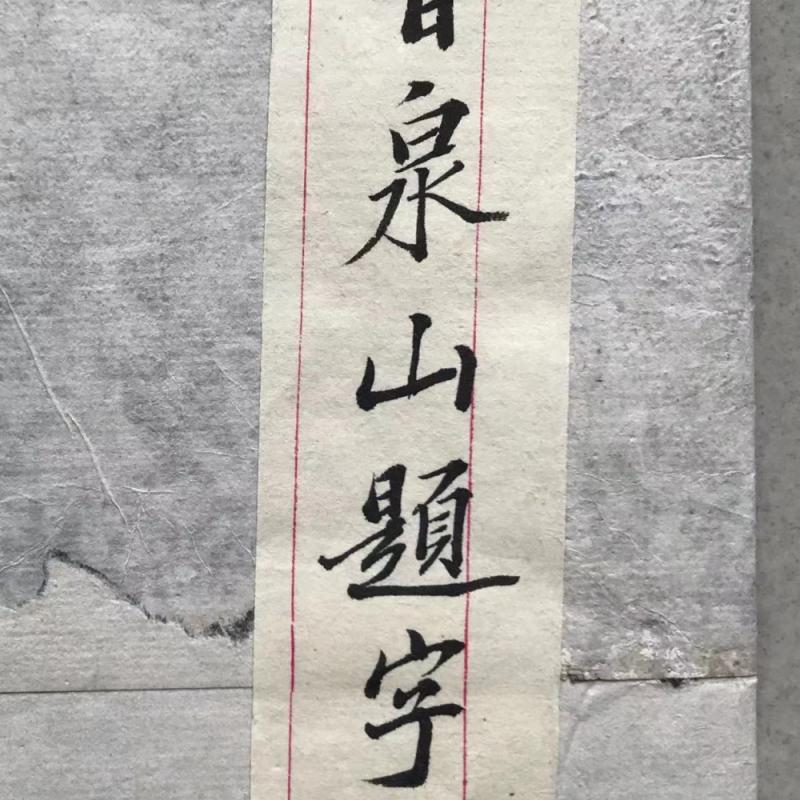 泉山題字